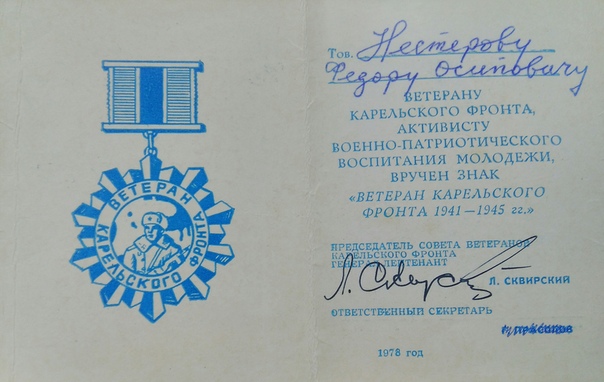 ВЕТЕРАН
КАРЕЛЬСКОГО ФРОНТА
Тов. Нестерову
Федору Осиповичу
ВЕТЕРАНУ
КАРЕЛЬСКОГО ФРОНТА,
АКТИВИСТУ
ВОЕННО-ПАТРИОТИЧЕСКОГО
ВОСПИТАНИЯ МОЛОДЕЖИ,
ВРУЧЕН ЗНАК
«ВЕТЕРАН КАРЕЛЬСКОГО
ФРОНТА 1941—1945 гг.»
ПРЕДСЕДАТЕЛЬ СОВЕТА ВЕТЕРАНОВ
КАРЕЛЬСКОГО ФРОНТА
ГЕНЕРАЛ ЛЕЙТЕНАНТ
Л. СКВИРСКИЙ
ОТВЕТСТВЕННЫЙ СЕКРЕТАРЬ
1978 год